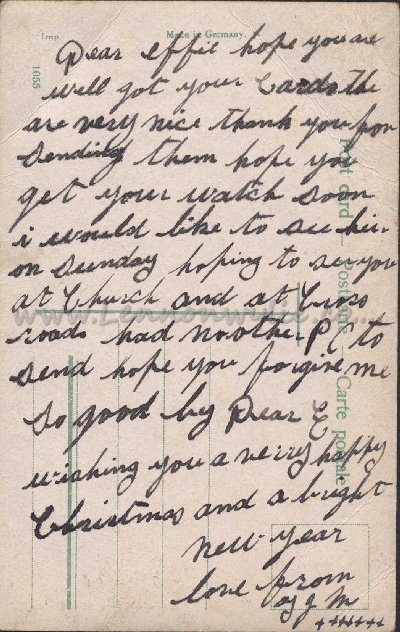 Imp.
Made in Germany.
1055
Dear Effie hope you are
well got your Cards the
are very nice thank you for
sending them hope you
get your watch soon
i would like to see her
on Sunday hoping to see you
at Church and at Cross
roads had no other P C to
send hope you forgive me
so good by Dear E
wishing you a very happy
Christmas and a bright
new year
love from
M
+++++++
Post card — Postkarte — Carte postale